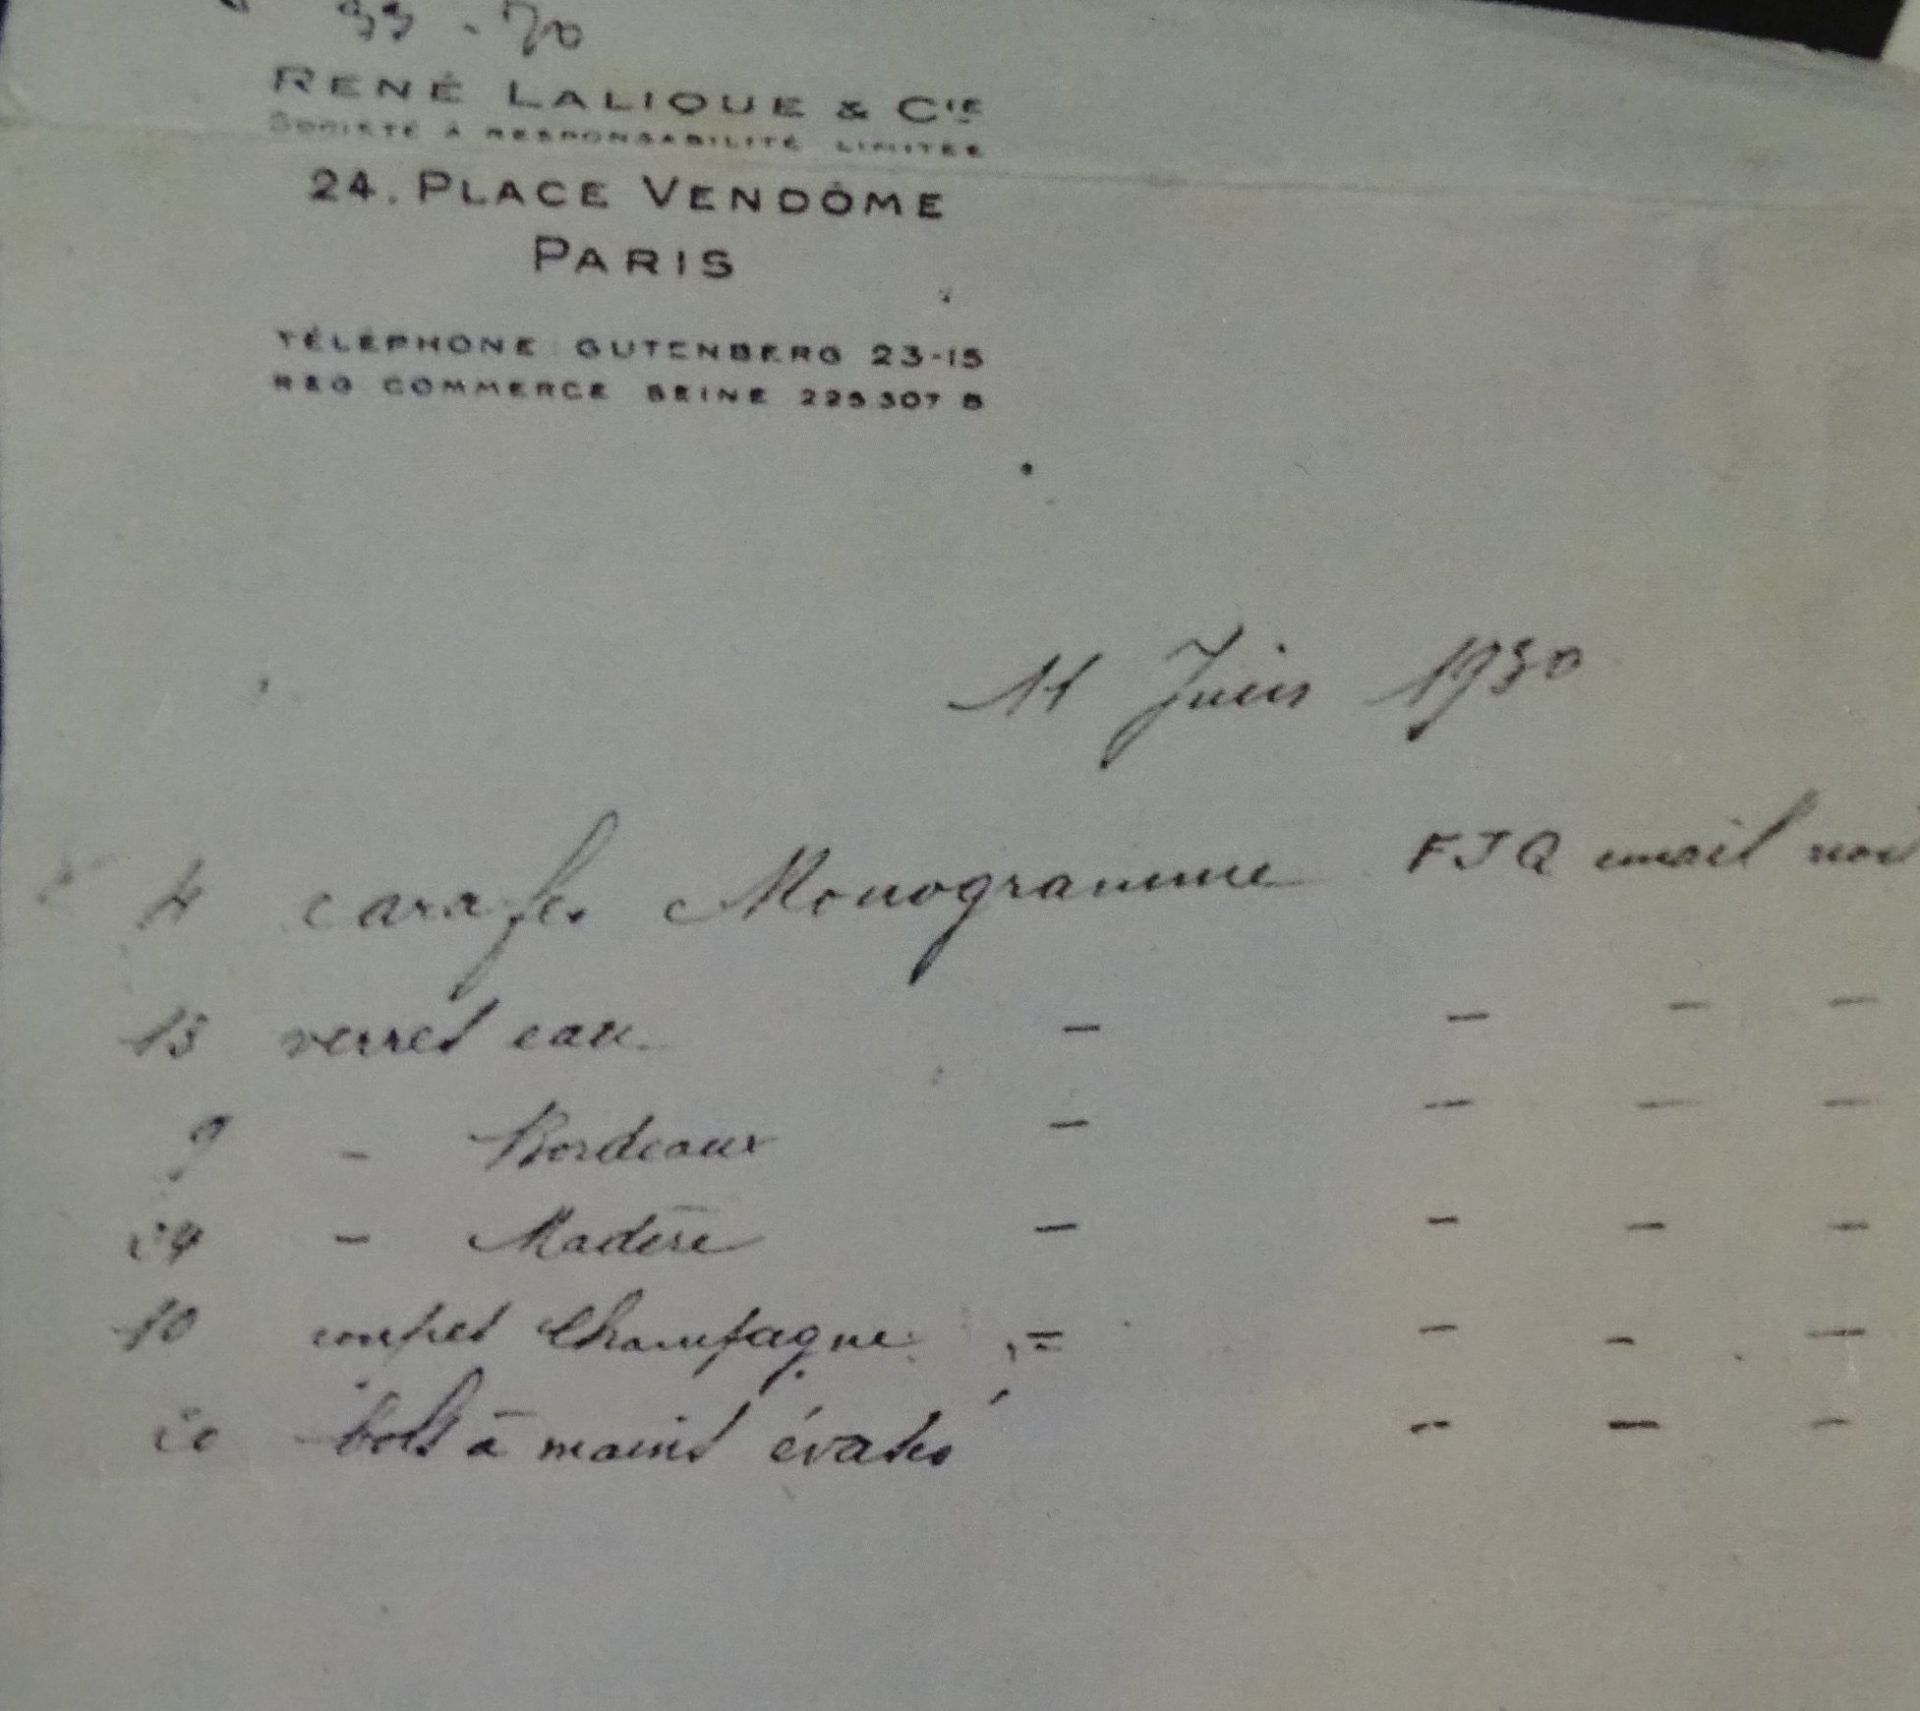 RENÉ LALIQUE & CIE
SOCIÉTÉ À RESPONSABILITÉ LIMITÉE
24. PLACE VENDÔME
PARIS
TÉLÉPHONE GUTENBERG 23-15
REG COMMERCE SEINE 225307 B
11 Juin 1930
4 carafes Monogramme FJQ email noi
15 verres eau - - - -
9 - Bordeaux - - - -
24 - Madère - - - -
10 coupes Champagne = - - -
bols à mains évasés - - -